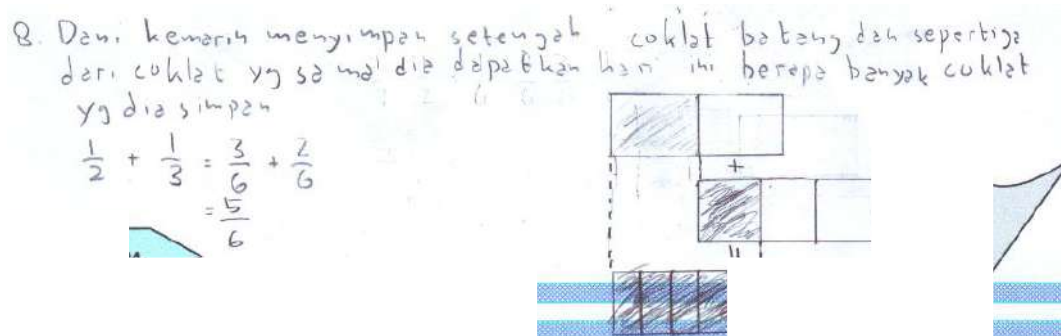 B. Dani kemarin menyimpan setengah coklat batang dan sepertiga
dari coklat yg sama dia dapatkan hari ini berapa banyak coklat
yg dia simpan
1/2 + 1/3 = 3/6 + 2/6
= 5/6
+
=